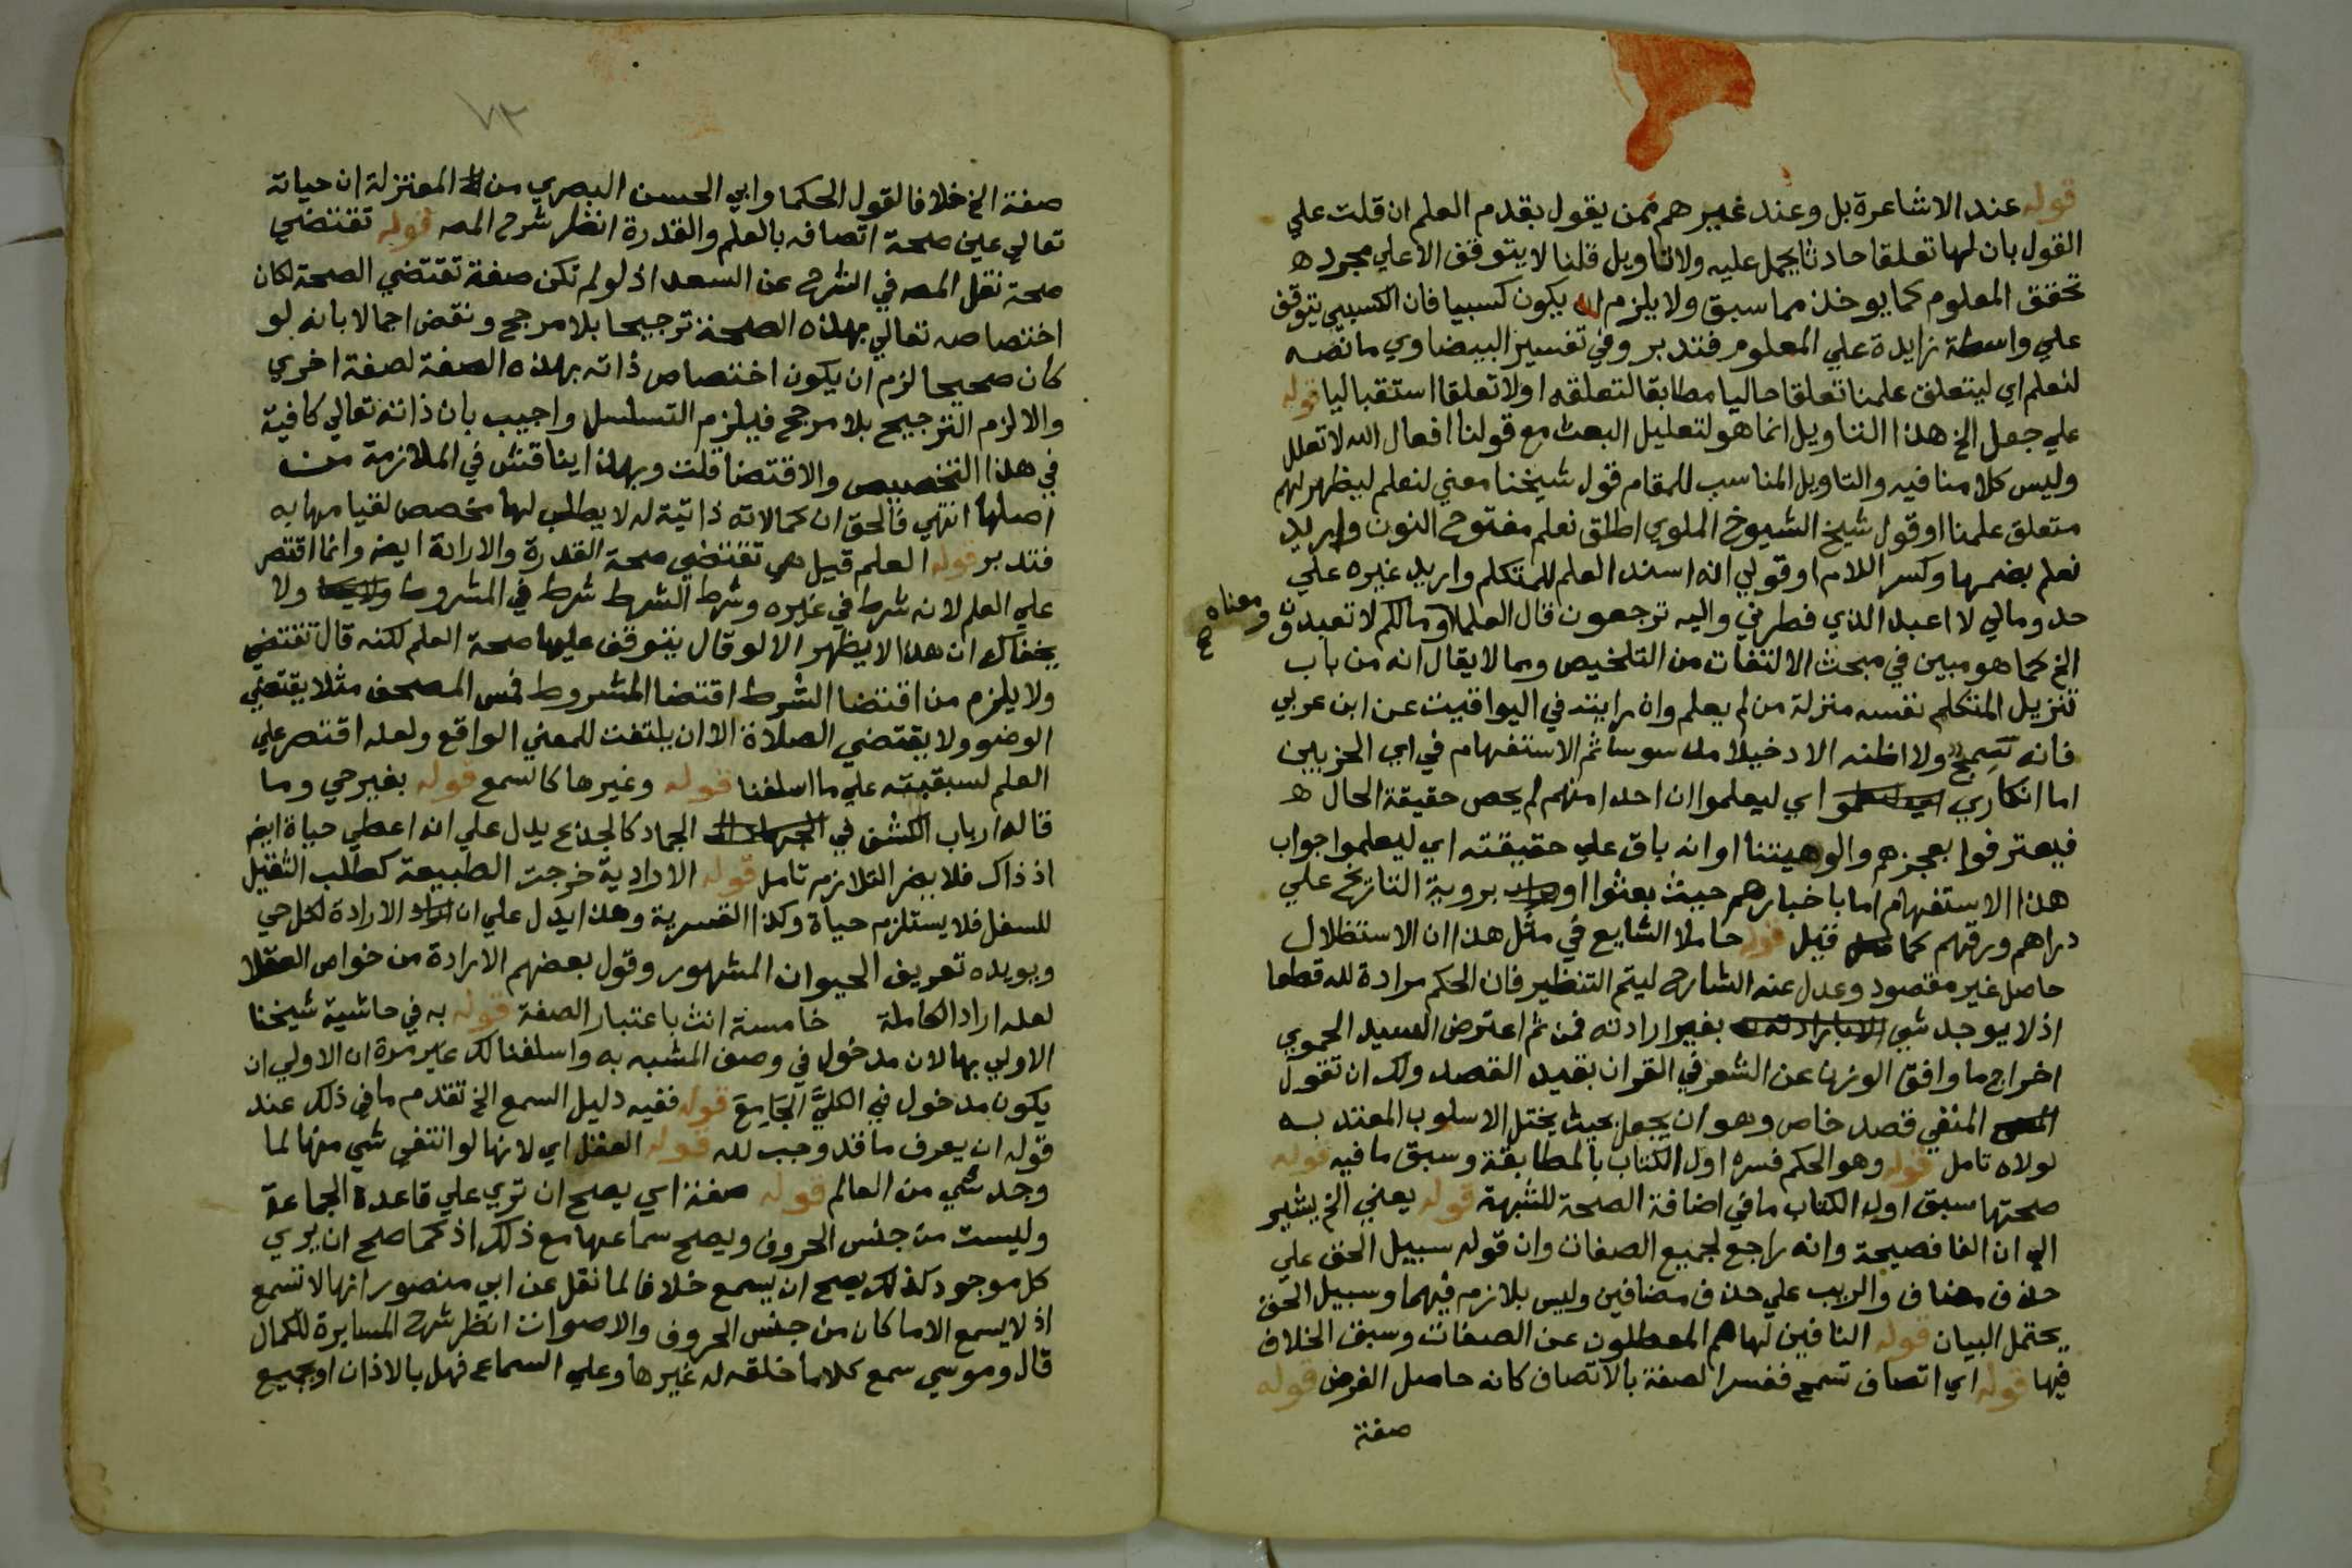 قوله عند الاشاعرة بل وعند غيرهم ممن يقول بقدم العلم ان قلت علي
القول بان لها تعلقا حادثا يحمل عليه ولا تاويل قلنا لا يتوقف الا علي مجرد ه
تحقق المعلوم كما يوخذ مما سبق ولا يلزم ان يكون كسبيا فان الكسبي يتوقف
علي واسطة زايدة علي المعلوم فتدبر وفي تفسير البيضاوي ما نصه
لنعلم اي ليتعلق علمنا تعلقا حاليا مطابقا لتعلقه اولا تعلقا استقباليا قوله
علي جعل الخ هذا التاويل انما هو لتعليل البعث مع قولنا افعال الله لا تعلل
وليس كلامنا فيه والتاويل المناسب للمقام قول شيخنا معني لنعلم ليظهر لهم
متعلق علمنا او قول شيخ الشيوخ الملوي اطلق نعلم مفتوح النون واريد
نعلم بضمها وكسر اللام او قولي انه اسند العلم للمتكلم واريد غيره علي
حد ومالي لا اعبد الذي فطرني واليه ترجعون قال العلما ومالكم لا تعبدون
ومعناه صح
الخ كما هو مبين في مبحث الالتفات من التلخيص وما لا يقال انه من باب
تنزيل المتكلم نفسه منزلة من لم يعلم وان رايته في اليواقيت عن ابن عربي
فانه سمج ولا اظنه الا دخيلا مدسوسا ثم الاستفهام في اي الحزبين
اما انكاري اي ليعلموا ان احدا منهم لم يحص حقيقة الحال ه
فيعترفوا بعجزهم والوهيتنا او انه باق علي حقيقته اي ليعلموا جواب
هذا الاستفهام اما باخبارهم حيث بعثوا او بروية التاريخ علي
دراهم ورقهم كما قيل قوله حاملا الشايع في مثل هذا ان الاستظلال
حاصل غير مقصود وعدل عنه الشارح ليتم التنظير فان الحكم مرادة لله قطعا
اذ لا يوجد شي بغير ارادته فمن ثم اعترض السيد الحموي
اخراج ما وافق الوزن عن الشعر في القران بقيد القصد ولك ان تقول
المنفي قصد خاص وهو ان يجعل بحيث يختل الاسلوب المعتد به
لولاه تامل قوله وهو الحكم فسره اول الكتاب بالمطابقة وسبق ما فيه قوله
صحتها سبق اول الكتاب ما في اضافة الصحة للشبهة قوله يعني الخ يشير
الي ان الفا فصيحة وانه راجع لجميع الصفات وان قوله سبيل الحق علي
حذف مضاف والريب علي حذف مضافين وليس بلازم فيهما وسبيل الحق
يحتمل البيان قوله النافين لها هم المعطلون عن الصفات وسبق الخلاف
فيها قوله اي اتصاف تسمح ففسر الصفة بالاتصاف كانه حاصل الغرض قوله
صفة
٧٣
صفة الخ خلافا لقول الحكما وابي الحسن البصري من المعتزلة ان حياته
تعالي عين صحة اتصافه بالعلم والقدرة انظر شرح المص قوله تقتضي
صحة نقل المص في الشرح عن السعد اذ لو لم تكن صفة تقتضي الصحة لكان
اختصاصه تعالي بهذه الصحة ترجيحا بلا مرجح ونقض اجمالا بانه لو
كان صحيحا لزم ان يكون اختصاص ذاته بهذه الصفة لصفة اخري
والا لزم الترجيح بلا مرجح فيلزم التسلسل واجيب بان ذاته تعالي كافية
في هذا التخصيص والاقتضا قلت وبهذا يناقش في الملازمة من
اصلها انتهي فالحق ان كمالاته ذاتية له لا يطلب لها مخصص لقيامها به
فتدبر قوله العلم قيل هي تقتضي صحة القدرة والارادة ايض وانما اقتصر
علي العلم لانه شرط في غيره وشرط الشرط شرط في المشروط ولا
يخفاك ان هذا لا يظهر الا لو قال يتوقف عليها صحة العلم لكنه قال تقتضي
ولا يلزم من اقتضا الشرط اقتضا المشروط فمس المصحف مثلا يقتضي
الوضو ولا يقتضي الصلاة الا ان يلتفت للمعني الواقع ولعله اقتصر علي
العلم لسبقيته علي ما اسلفنا قوله وغيرها كالسمع قوله بغير حي وما
قاله ارباب الكشف في الجماد كالجذع يدل علي انه اعطي حياة ايض
اذ ذاك فلا يضر التلازم تامل قوله الارادية خرجت الطبيعة كطلب الثقيل
للسفل فلا يستلزم حياة وكذا القسرية وهذا يدل علي ان الارادة لكل حي
ويويده تعريف الحيوان المشهور وقول بعضهم الارادة من خواص العقلا
لعله اراد الكاملة خامسة انث باعتبار الصفة قوله به في حاشية شيخنا
الاولي بها لان مدخول في وصف المشبه به واسلفنا لك غير مرة ان الاولي ان
يكون مدخول في الكلي الجامع قوله ففيه دليل السمع الخ تقدم ما في ذلك عند
قوله ان يعرف ما قد وجب لله قوله العقل اي لانها لو انتفي شي منها لما
وجد شي من العالم قوله صفة اي يصح ان تري علي قاعدة الجماعة
وليست من جنس الحروف ويصح سماعها مع ذلك اذ كما صح ان يري
كل موجود كذلك يصح ان يسمع خلافا لما نقل عن ابي منصور انها لا تسمع
اذ لا يسمع الا ما كان من جنس الحروف والاصوات انظر شرح المسايرة للكمال
قال وموسي سمع كلاما خلقه له غيرها وعلي السماع فهل بالاذان او بجميع